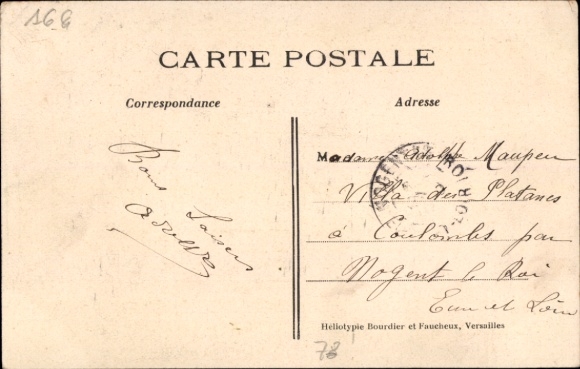 168
CARTE POSTALE
Correspondance
Adresse
Bons baisers
Adolphe
Madame Adolphe Maupeu
Villa des Platanes
à Coulombs par
Nogent le Roi
Eure et Loir
Héliotypie Bourdier et Faucheux, Versailles
78